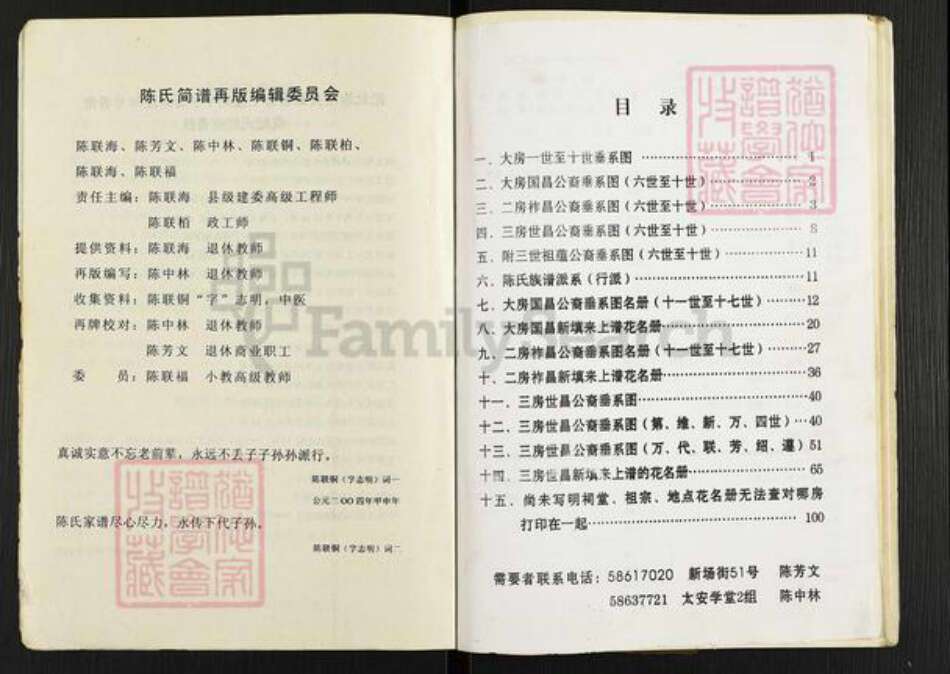 陈氏简谱再版编辑委员会
陈联海、陈芳文、陈中林、陈联铜、陈联柏、
陈联海、陈联福
责任主编：陈联海 县级建委高级工程师
陈联栢 政工师
提供资料：陈联海 退休教师
再版编写：陈中林 退休教师
收集资料：陈联铜“字”志明，中医
再牌校对：陈中林 退休教师
陈芳文 退休商业职工
委 员：陈联福 小教高级教师
真诚实意不忘老前辈，永远不丢子子孙孙派行。
陈联铜（字志明）词一
公元二〇〇四年甲申年
陈氏家谱尽心尽力，永传下代子孙。
陈联铜（字志明）词二
目 录
一、大房一世至十世垂系图 ……………… 1
二、大房国昌公裔垂系图（六世至十世）………… 2
三、二房祚昌公裔垂系图（六世至十世）………… 3
四、三房世昌公裔垂系图（六世至十世）………… 8
五、附三世祖蕴公裔垂系图（六世至十世）………11
六、陈氏族谱派系（行派）………………11
七、大房国昌公裔垂系图名册（十一世至十七世）……12
八、大房国昌新填来上谱花名册………………20
九、二房祚昌公裔垂系图名册（十一世至十七世）……27
十、二房祚昌新填来上谱花名册………………36
十一、三房世昌公裔垂系图………………40
十二、三房世昌公裔垂系图（第、维、新、万、四世）…40
十三、三房世昌公裔垂系图（万、代、联、芳、绍、遵）51
十四、三房世昌新填来上谱的花名册……………65
十五、尚未写明祠堂、祖宗、地点花名册无法查对哪房
打印在一起………………………… 100
需要者联系电话：58617020 新场街51号 陈芳文
58637721 太安学堂2组 陈中林
FamilySearch